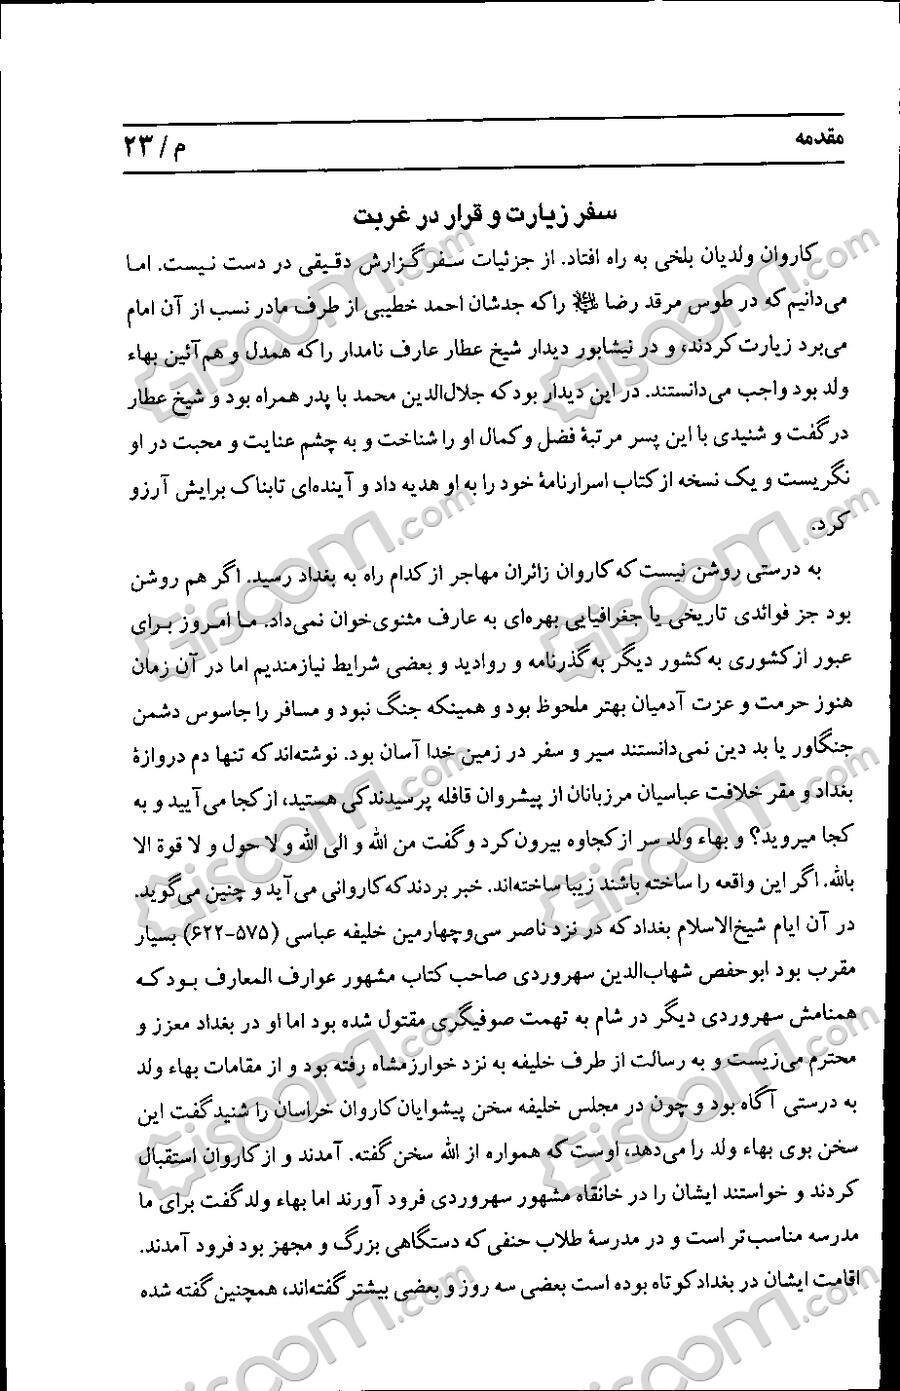 مقدمه
م / ۲۳
سفر زیارت و قرار در غربت
کاروان ولدیان بلخی به راه افتاد. از جزئیات سفر گزارش دقیقی در دست نیست. اما
می‌دانیم که در طوس مرقد رضا علیه‌السلام را که جدشان احمد خطیبی از طرف مادر نسب از آن امام
می‌برد زیارت کردند، و در نیشابور دیدار شیخ عطار عارف نامدار را که همدل و هم‌آئین بهاء
ولد بود واجب می‌دانستند. در این دیدار بود که جلال‌الدین محمد با پدر همراه بود و شیخ عطار
در گفت و شنیدی با این پسر مرتبهٔ فضل و کمال او را شناخت و به چشم عنایت و محبت در او
نگریست و یک نسخه از کتاب اسرارنامهٔ خود را به او هدیه داد و آینده‌ای تابناک برایش آرزو
کرد.
به درستی روشن نیست که کاروان زائران مهاجر از کدام راه به بغداد رسید. اگر هم روشن
بود جز فوائدی تاریخی یا جغرافیایی بهره‌ای به عارف مثنوی‌خوان نمی‌داد. ما امروز برای
عبور از کشوری به کشور دیگر به گذرنامه و روادید و بعضی شرایط نیازمندیم اما در آن زمان
هنوز حرمت و عزت آدمیان بهتر ملحوظ بود و همینکه جنگ نبود و مسافر را جاسوس دشمن
جنگاور یا بد دین نمی‌دانستند سیر و سفر در زمین خدا آسان بود. نوشته‌اند که تنها دم دروازهٔ
بغداد و مقر خلافت عباسیان مرزبانان از پیشروان قافله پرسیدند کی هستید، از کجا می‌آیید و به
کجا میروید؟ و بهاء ولد سر از کجاوه بیرون کرد و گفت من الله و الی الله و لا حول و لا قوة الا
بالله. اگر این واقعه را ساخته باشند زیبا ساخته‌اند. خبر بردند که کاروانی می‌آید و چنین می‌گوید.
در آن ایام شیخ‌الاسلام بغداد که در نزد ناصر سی‌وچهارمین خلیفه عباسی (۵۷۵-۶۲۲) بسیار
مقرب بود ابوحفص شهاب‌الدین سهروردی صاحب کتاب مشهور عوارف المعارف بود که
همنامش سهروردی دیگر در شام به تهمت صوفیگری مقتول شده بود اما او در بغداد معزز و
محترم می‌زیست و به رسالت از طرف خلیفه به نزد خوارزمشاه رفته بود و از مقامات بهاء ولد
به درستی آگاه بود و چون در مجلس خلیفه سخن پیشوایان کاروان خراسان را شنید گفت این
سخن بوی بهاء ولد را می‌دهد، اوست که همواره از الله سخن گفته. آمدند و از کاروان استقبال
کردند و خواستند ایشان را در خانقاه مشهور سهروردی فرود آورند اما بهاء ولد گفت برای ما
مدرسه مناسب‌تر است و در مدرسهٔ طلاب حنفی که دستگاهی بزرگ و مجهز بود فرود آمدند.
اقامت ایشان در بغداد کوتاه بوده است بعضی سه روز و بعضی بیشتر گفته‌اند، همچنین گفته شده
Gisoom.com